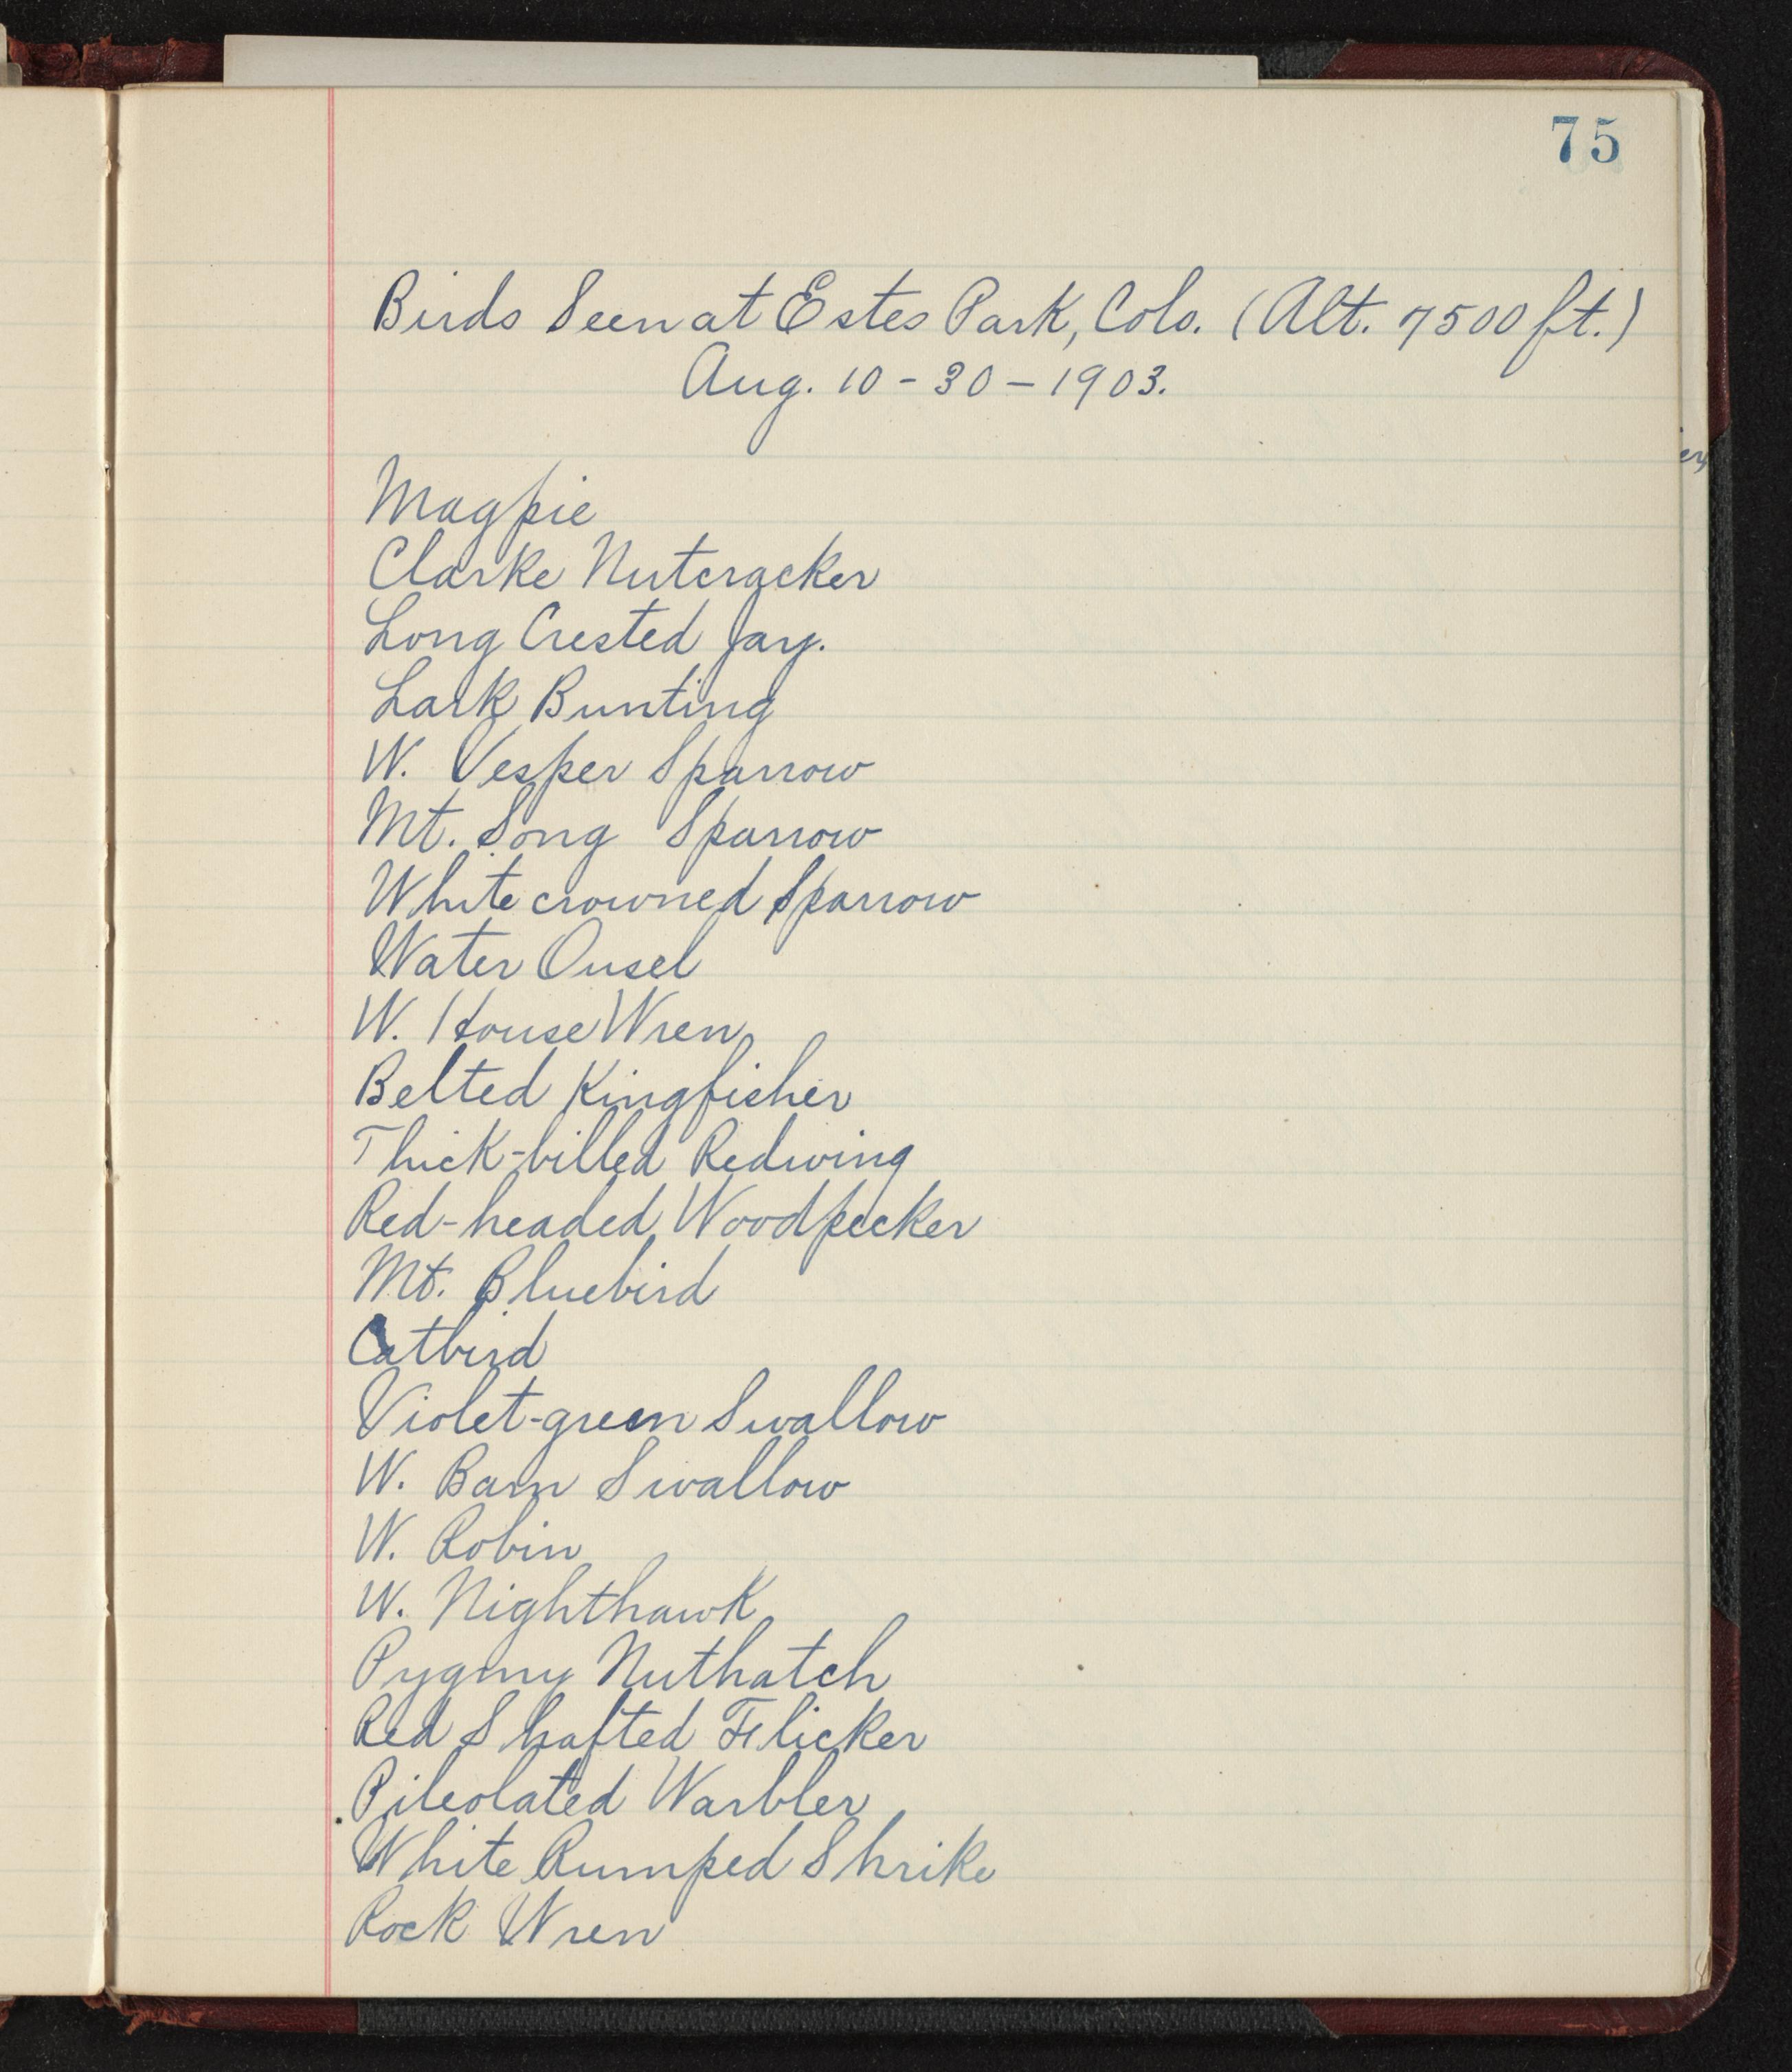 75
Birds Seen at Estes Park, Colo. (Alt. 7500 ft.)
Aug. 10 - 30 - 1903.
Magpie
Clarke Nutcracker
Long Crested Jay.
Lark Bunting
W. Vesper Sparrow
Mt. Song Sparrow
White crowned Sparrow
Water Ousel
W. House Wren
Belted Kingfisher
Thick-billed Redwing
Red-headed Woodpecker
Mt. Bluebird
Catbird
Violet-green Swallow
W. Barn Swallow
W. Robin
W. Nighthawk
Pygmy Nuthatch
Red Shafted Flicker
Pileolated Warbler
White Rumped Shrike
Rock Wren